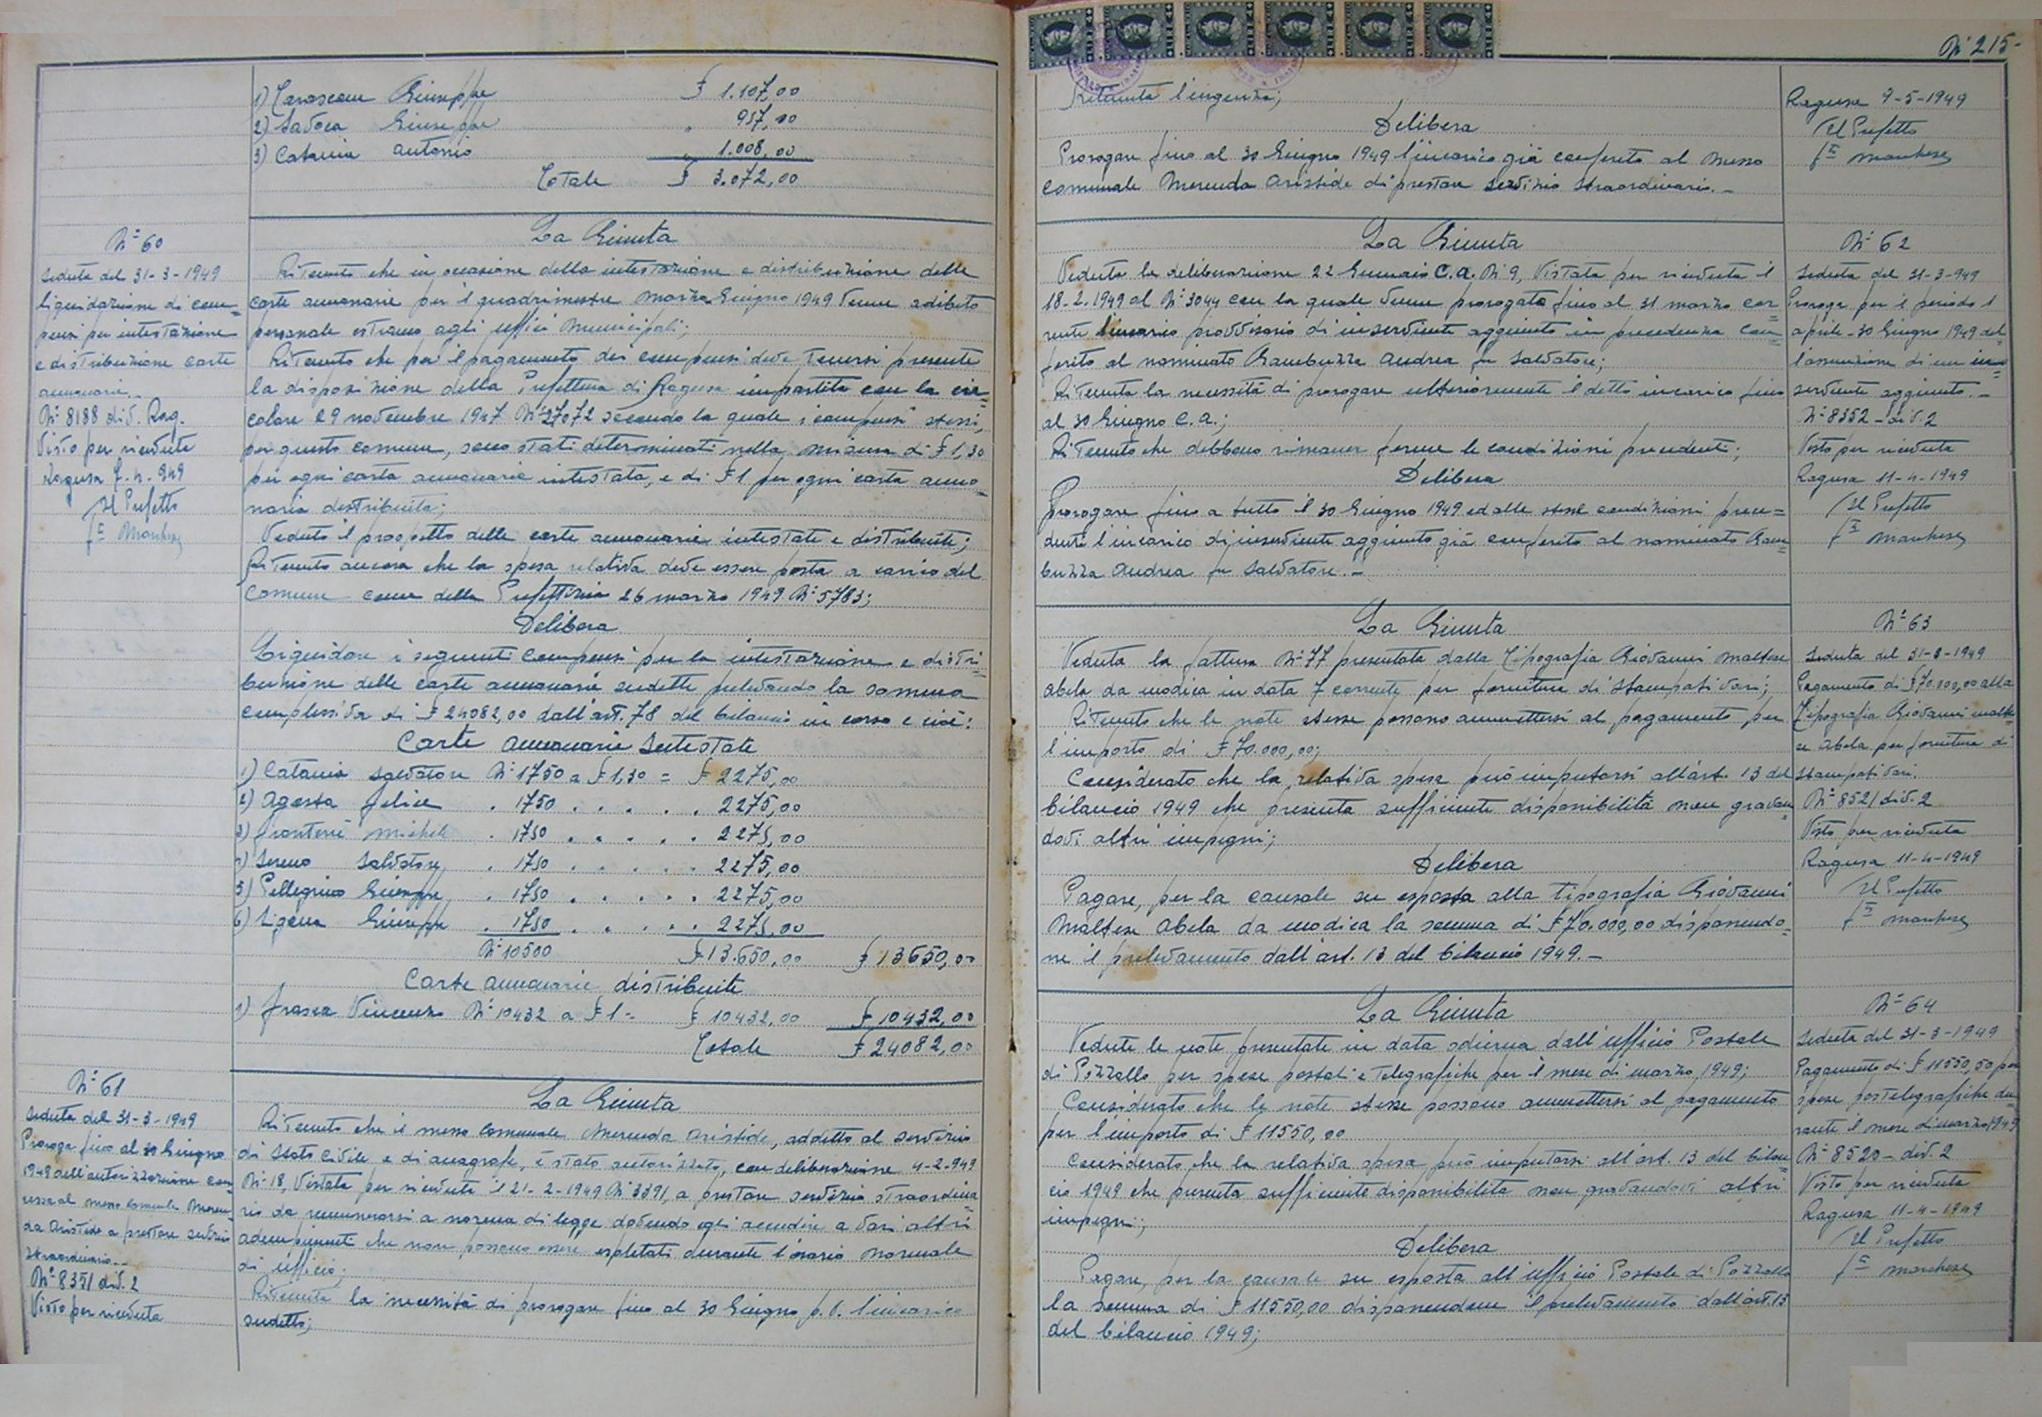 1) Carascone Giuseppe £ 1.107,00
2) Savoca Giuseppe " 957,00
3) Catania Antonio " 1.008,00
Totale £ 3.072,00
N° 60
Seduta del 31-3-1949
liquidazione di com=
pensi per intestazione
e distribuzione carte
annonarie.
N° 8188 div. Rag.
Visto per ricevuta
Ragusa 7-4-949
Il Prefetto
f° Marchese
La Giunta
Ritenuto che in occasione della intestazione e distribuzione delle
carte annonarie per il quadrimestre marzo Giugno 1949 venne adibito
personale estraneo agli uffici Municipali;
Ritenuto che per il pagamento dei compensi deve tenersi presente
la disposizione della Prefettura di Ragusa impartita con la cir=
colare 29 novembre 1947 N° 27072 secondo la quale i compensi stessi,
per questo comune, sono stati determinati nella misura di £ 1,30
per ogni carta annonaria intestata, e di £ 1 per ogni carta anno=
naria distribuita;
Veduto il prospetto delle carte annonarie intestate e distribuite;
Ritenuto ancora che la spesa relativa deve essere posta a carico del
Comune come della Prefettizia 26 marzo 1949 N° 5783;
Delibera
Liquidare i seguenti compensi per la intestazione e distri=
buzione delle carte annonarie sudette prelevando la somma
complessiva di £ 24082,00 dall'art. 78 del bilancio in corso e cioè:
Carte annonarie Intestate
1) Catania Salvatore N° 1750 a £ 1,30 = £ 2275,00
2) Agosta Felice . 1750 . . . . . 2275,00
3) Fronterrè Michele . 1750 . . . . . 2275,00
4) Sereno Salvatore . 1750 . . . . . 2275,00
5) Pellegrino Giuseppe . 1750 . . . . . 2275,00
6) Ligama Giuseppe . 1750 . . . . . 2275,00
N° 10500 £ 13.650,00 £ 13650,00
Carte annonarie distribuite
1) Frasca Vincenzo N° 10432 a £ 1 = £ 10432,00 £ 10432,00
Totale £ 24082,00
N° 61
Seduta del 31-3-1949
Proroga fino al 30 Giugno
1949 dell'autorizzazione con=
cessa al messo comunale Meren=
da Aristide a prestare servizio
straordinario.
N° 8351 div. 2
Visto per ricevuta
La Giunta
Ritenuto che il messo comunale Merenda Aristide, addetto al servizio
di Stato Civile e di anagrafe, è stato autorizzato, con deliberazione 4-2-949
N° 18, Vistata per ricevuta il 21-2-1949 N° 3391, a prestare servizio straordina=
rio da remunerarsi a norma di legge dovendo egli accudire a vari altri
adempimenti che non possono essere espletati durante l'orario normale
di ufficio;
Ritenuta la necessità di prorogare fino al 30 Giugno p.v. l'incarico
sudetto;
N° 215-
Ritenuta l'urgenza;
Delibera
Prorogare fino al 30 Giugno 1949 l'incarico già conferito al messo
comunale Merenda Aristide di prestare servizio straordinario.-
Ragusa 9-5-1949
Il Prefetto
f° Marchese
La Giunta
Veduta la deliberazione 22 Gennaio c.a. N° 9, Vistata per ricevuta il
18-2-1949 al N° 3044 con la quale venne prorogato fino al 31 marzo cor=
rente l'incarico provvisorio di inserviente aggiunto in precedenza con=
ferito al nominato Rambuzza Andrea fu Salvatore;
Ritenuta la necessità di prorogare ulteriormente il detto incarico fino
al 30 Giugno c.a.;
Ritenuto che debbono rimaner ferme le condizioni precedenti;
Delibera
Prorogare fino a tutto il 30 Giugno 1949 ed alle stesse condizioni prece=
denti l'incarico di inserviente aggiunto già conferito al nominato Ram=
buzza Andrea fu Salvatore.-
N° 62
Seduta del 31-3-949
Proroga per il periodo 1
aprile - 30 Giugno 1949 del
l'assunzione di un in=
serviente aggiunto.-
N° 8352 - div. 2
Visto per ricevuta
Ragusa 11-4-1949
Il Prefetto
f° Marchese
La Giunta
Veduta la fattura N° 77 presentata dalla Tipografia Giovanni Maltese
Abela da Modica in data 7 corrente per forniture di stampati vari;
Ritenuto che le note stesse possono ammettersi al pagamento per
l'importo di £ 70.000,00;
Considerato che la relativa spesa può imputarsi all'art. 13 del
bilancio 1949 che presenta sufficiente disponibilità non gravan=
dovi altri impegni;
Delibera
Pagare, per la causale su esposta alla Tipografia Giovanni
Maltese Abela da Modica la somma di £ 70.000,00 disponendo=
ne il prelevamento dall'art. 13 del bilancio 1949.-
N° 63
Seduta del 31-3-1949
Pagamento di £ 70.000,00 alla
Tipografia Giovanni Malte=
se Abela per forniture di
stampati vari.
N° 8521 div. 2
Visto per ricevuta
Ragusa 11-4-1949
Il Prefetto
f° Marchese
La Giunta
Vedute le note presentate in data odierna dall'ufficio Postale
di Pozzallo per spese postali e telegrafiche per il mese di marzo 1949;
Considerato che le note stesse possono ammettersi al pagamento
per l'importo di £ 11550,00
Considerato che la relativa spesa può imputarsi all'art. 13 del bilan=
cio 1949 che presenta sufficiente disponibilità non gravandovi altri
impegni;
Delibera
Pagare, per la causale su esposta all'ufficio Postale di Pozzallo
la somma di £ 11550,00 disponendone il prelevamento dall'art. 13
del bilancio 1949;
N° 64
Seduta del 31-3-1949
Pagamento di £ 11550,50 per
spese postelegrafiche du=
rante il mese di marzo 1949
N° 8520 - div. 2
Visto per ricevuta
Ragusa 11-4-1949
Il Prefetto
f° Marchese